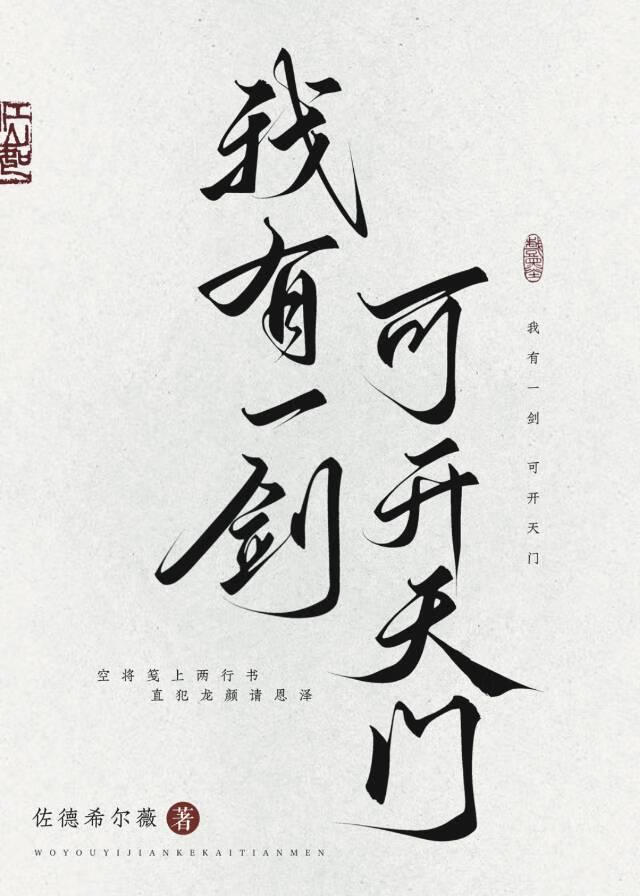 我有一剑
可开天门
我有一剑 可开天门
空将笺上两行书
直犯龙颜请恩泽
佐德希尔薇 著
WOYOUYIJIANKEKAITIANMEN